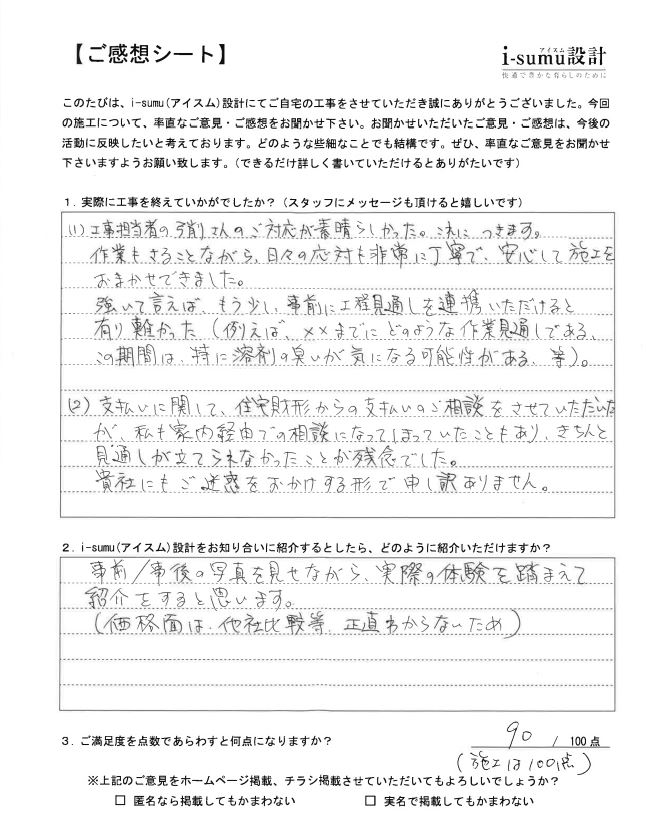 【ご感想シート】
アイスム
i-sumu設計
快適で豊かな暮らしのために
このたびは、i-sumu(アイスム)設計にてご自宅の工事をさせていただき誠にありがとうございました。今回
の施工について、率直なご意見・ご感想をお聞かせ下さい。お聞かせいただいたご意見・ご感想は、今後の
活動に反映したいと考えております。どのような些細なことでも結構です。ぜひ、率直なご意見をお聞かせ
下さいますようお願い致します。(できるだけ詳しく書いていただけるとありがたいです)
1．実際に工事を終えていかがでしたか？（スタッフにメッセージも頂けると嬉しいです）
(1) 工事担当者の引削さんのご対応が素晴らしかった。これにつきます。
作業もさることながら、日々の応対も非常に丁寧で、安心して施工を
おまかせできました。
強いて言えば、もう少し事前に工程見通しを連携いただけると
有り難かった（例えば、××までにどのような作業見通しである、
この期間は、特に溶剤の臭いが気になる可能性がある、等）。
(2) 支払いに関して、住宅財形からの支払いのご相談をさせていただいた
が、私も家内経由での相談になってしまっていたこともあり、きちんと
見通しが立てられなかったことが残念でした。
貴社にもご迷惑をおかけする形で申し訳ありません。
2．i-sumu(アイスム)設計をお知り合いに紹介するとしたら、どのように紹介いただけますか？
事前/事後の写真を見せながら、実際の体験を踏まえて
紹介をすると思います。
（価格面は、他社比較等、正直わからないため）
3．ご満足度を点数であらわすと何点になりますか？
90 / 100点
（施工は100点）
※上記のご意見をホームページ掲載、チラシ掲載させていただいてもよろしいでしょうか？
□ 匿名なら掲載してもかまわない □ 実名で掲載してもかまわない